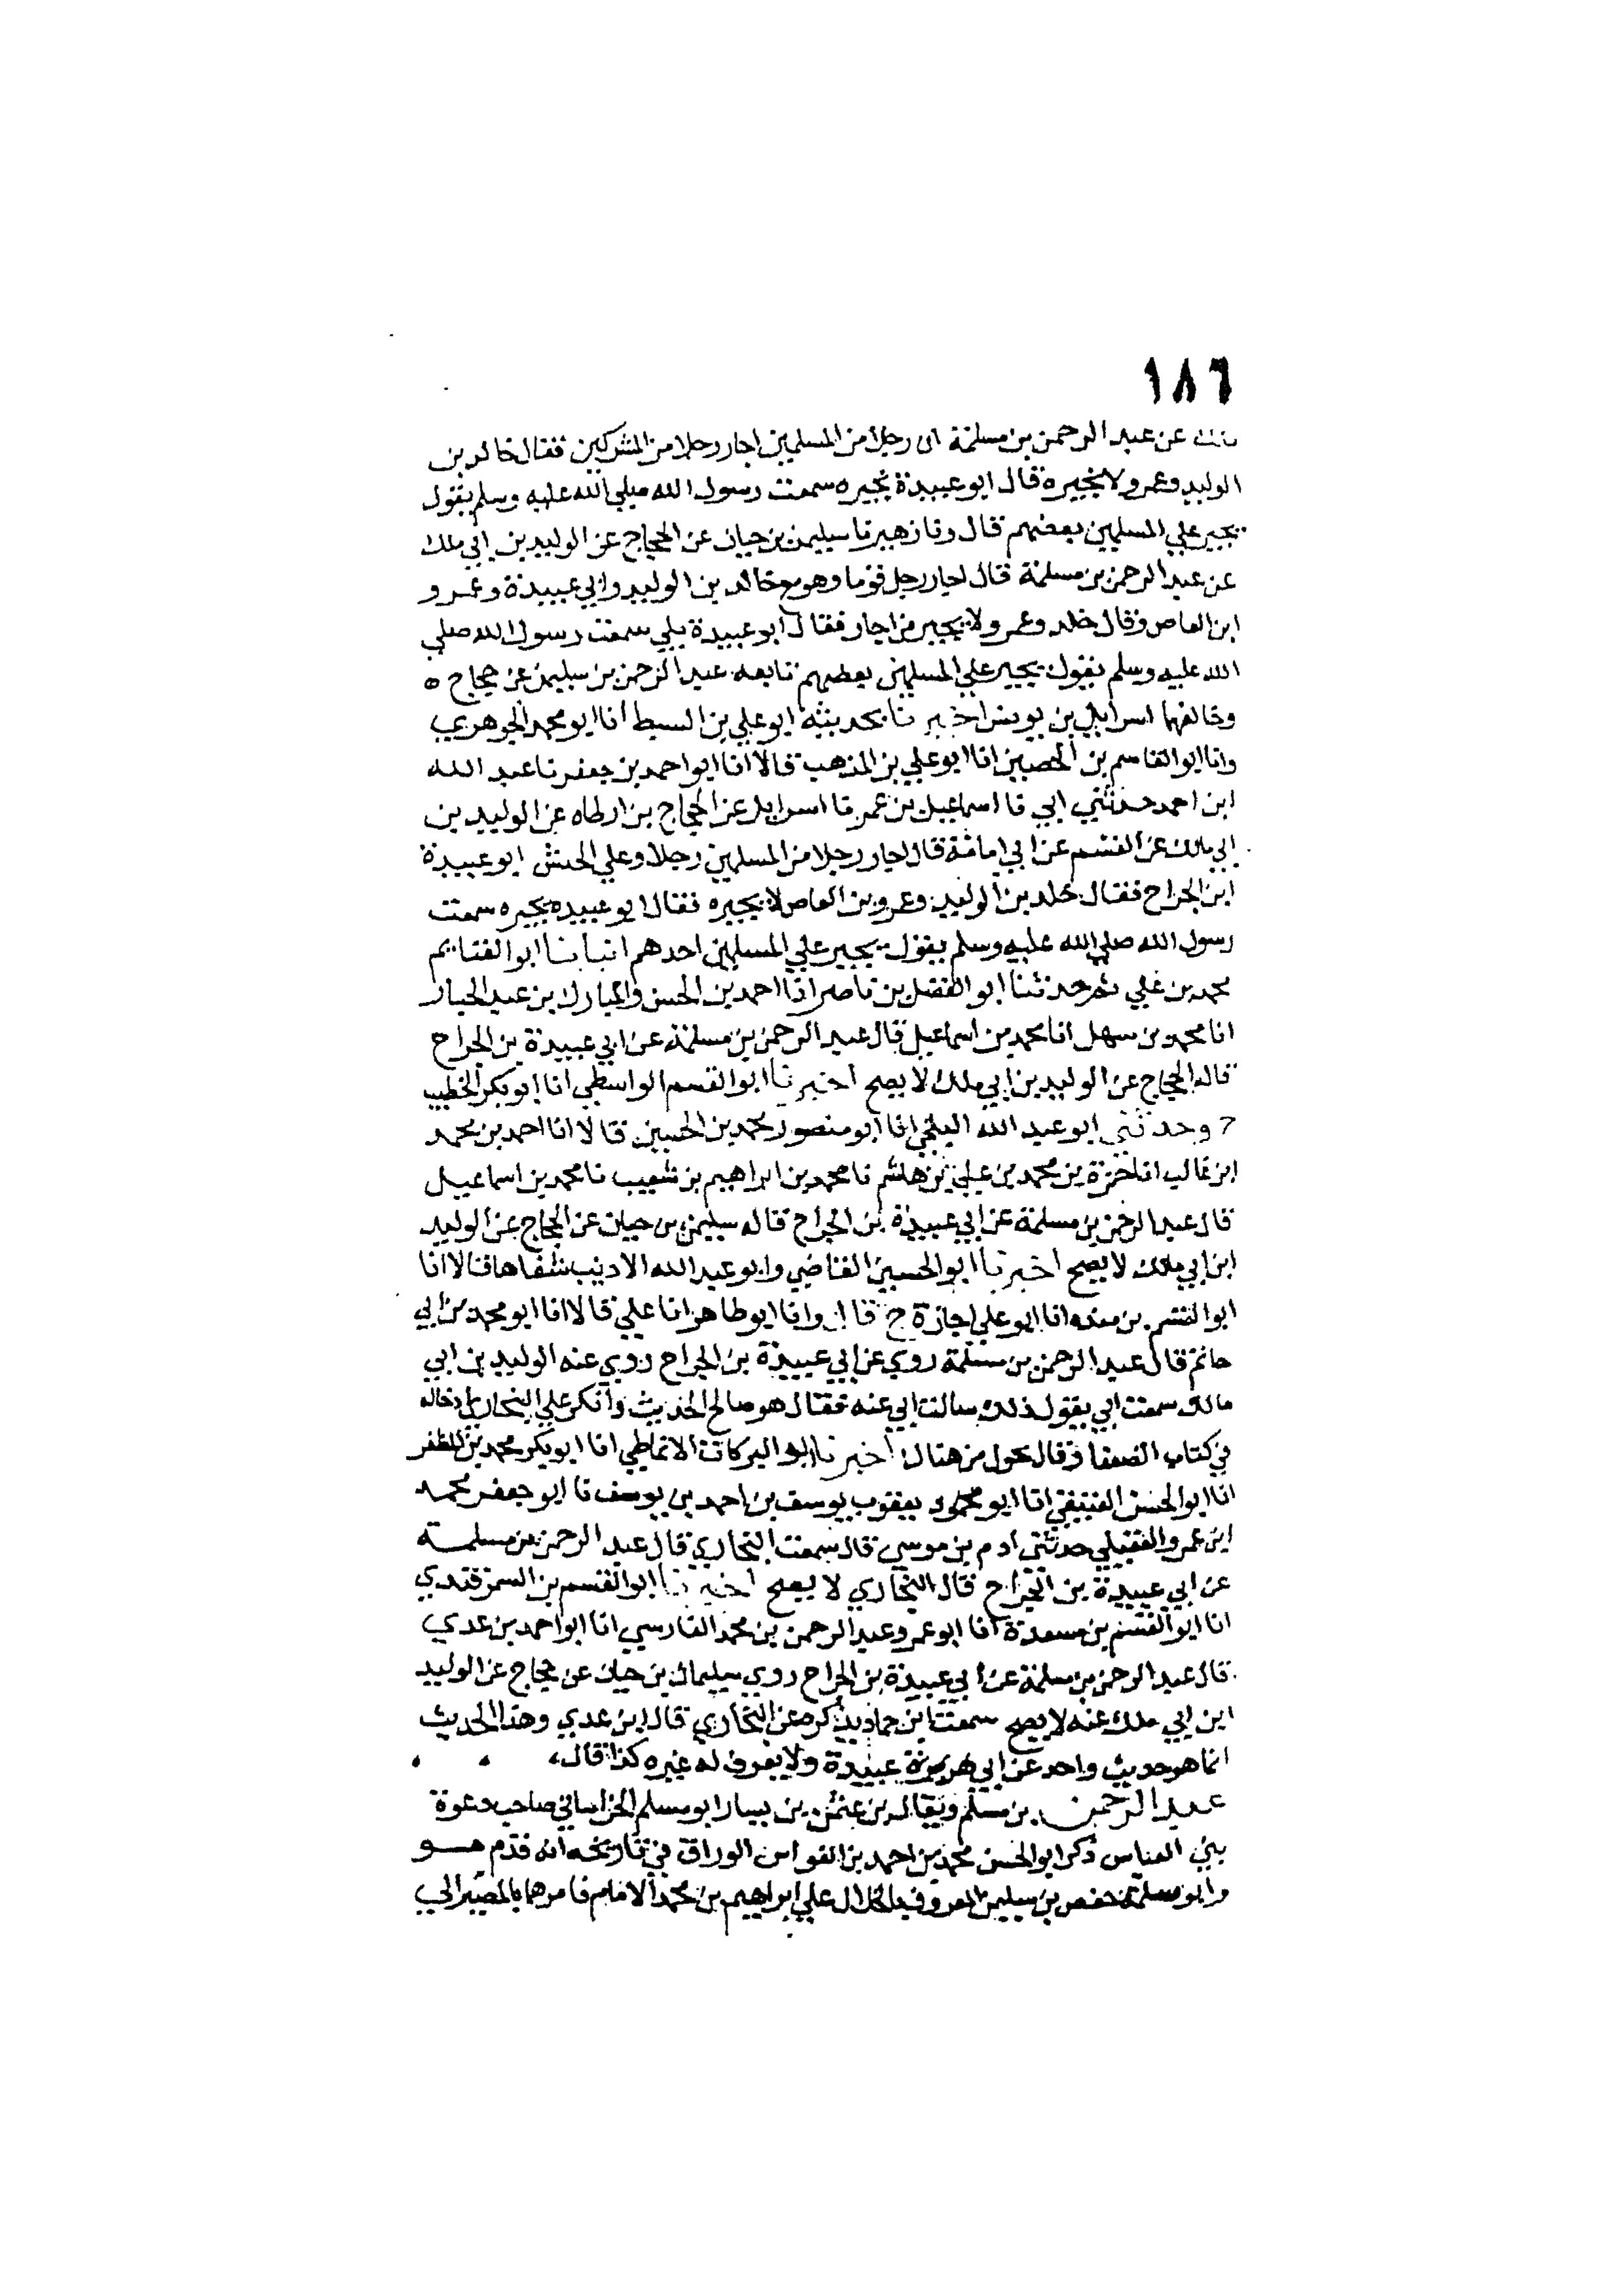 ١٨٦
ملك عن عبد الرحمن بن مسلمة ان رجلا من المسلمين اجار رجلا من المشركين فقال خالد بن
الوليد وعمرو لا نجيره قال ابو عبيدة نجيره سمعت رسول الله صلي الله عليه وسلم يقول
يجير علي المسلمين بعضهم قال ونا زهير نا سليمن بن حيان عن الحجاج عن الوليد بن ابي ملك
عن عبد الرحمن بن مسلمة قال اجار رجل قوما وهو مع خالد بن الوليد وابي عبيدة وعمرو
ابن العاص وقال خلد وعمرو لا يجير من اجار فقال ابو عبيدة بلي سمعت رسول الله صلي
الله عليه وسلم يقول يجير علي المسلمين بعضهم تابعه عبد الرحمن بن سليمن عن حجاج ه
وخالفهما اسرايل بن يونس اخبرنا بحديثه ابو علي بن السبط انا ابو محمد الجوهري
وانا ابو القاسم بن الحصين انا ابو علي بن المذهب قالا انا ابو احمد بن جعفر نا عبد الله
ابن احمد حدثني ابي نا اسماعيل بن عمر نا اسرايل عن الحجاج بن ارطاه عن الوليد بن
ابي مالك عن القسم عن ابي امامة قال اجار رجلا من المسلمين رجلا وعلي الجيش ابو عبيدة
ابن الجراح فقال خلد بن الوليد وعمرو بن العاص لا يجيره فقال ابو عبيده يجيره سمعت
رسول الله صلي الله عليه وسلم يقول يجير علي المسلمين احدهم انبانا ابو الغنايم
محمد بن علي ثم حدثنا ابو الفضل بن ناصر انا احمد بن الحسن والمبارك بن عبد الجبار
انا محمد بن سهل انا محمد بن اسماعيل قال عبد الرحمن بن مسلمة عن ابي عبيدة بن الجراح
قاله الحجاج عن الوليد بن ابي ملك لا يصح اخبرنا ابو القسم الواسطي انا ابو بكر الخطيب
ح وحدثني ابو عبد الله البلخي انا ابو منصور محمد بن الحسين قالا انا احمد بن محمد
ابن غالب انا حمزة بن محمد بن علي بن هاشم نا محمد بن ابراهيم بن شعيب نا محمد بن اسماعيل
قال عبد الرحمن بن مسلمة عن ابي عبيدة بن الجراح قاله سليمن بن حيان عن الحجاج عن الوليد
ابن ابي ملك لا يصح اخبرنا ابو الحسين القاضي وابو عبد الله الاديب شفاها قالا انا
ابو القسم بن منده انا ابو علي اجازة ح قال وانا ابو طاهر انا علي قالا انا ابو محمد بن ابي
حاتم قال عبد الرحمن بن مسلمة روي عن ابي عبيدة بن الجراح روي عنه الوليد بن ابي
مالك سمعت ابي يقول ذلك سالت ابي عنه فقال هو صالح الحديث وانكر علي البخاري ادخاله
في كتاب الضعفا وقال يحول من هناك اخبرنا ابو البركات الانماطي انا ابو بكر محمد بن المظفر
انا ابو الحسن العتيقي انا ابو يعقوب يوسف بن احمد بن يوسف نا ابو جعفر محمد
ابن عمرو العقيلي حدثني ادم بن موسي قال سمعت البخاري قال عبد الرحمن بن مسلمة
عن ابي عبيدة بن الجراح قال البخاري لا يصح اخبرنا ابو القسم بن السمرقندي
انا ابو القسم بن مسعدة انا ابو عمرو عبد الرحمن بن محمد الفارسي انا ابو احمد بن عدي
قال عبد الرحمن بن مسلمة عن ابي عبيدة بن الجراح روي سليمان بن حيان عن حجاج عن الوليد
ابن ابي ملك عنه لا يصح سمعت ابن حماد يذكره عن البخاري قال ابن عدي وهذا الحديث
انما هو حديث واحد عن ابي عبيدة ولا يعرف له غيره كذا قال
عبد الرحمن بن مسلم ويقال بن عثمن بن يسار ابو مسلم الخراساني صاحب دعوة
بني العباس ذكر ابو الحسن محمد بن احمد بن القواس الوراق في تاريخه انه قدم هو
وابو سلمة حفص بن سليمن المعروف بالخلال علي ابراهيم بن محمد الامام فامرهما بالمصير الي